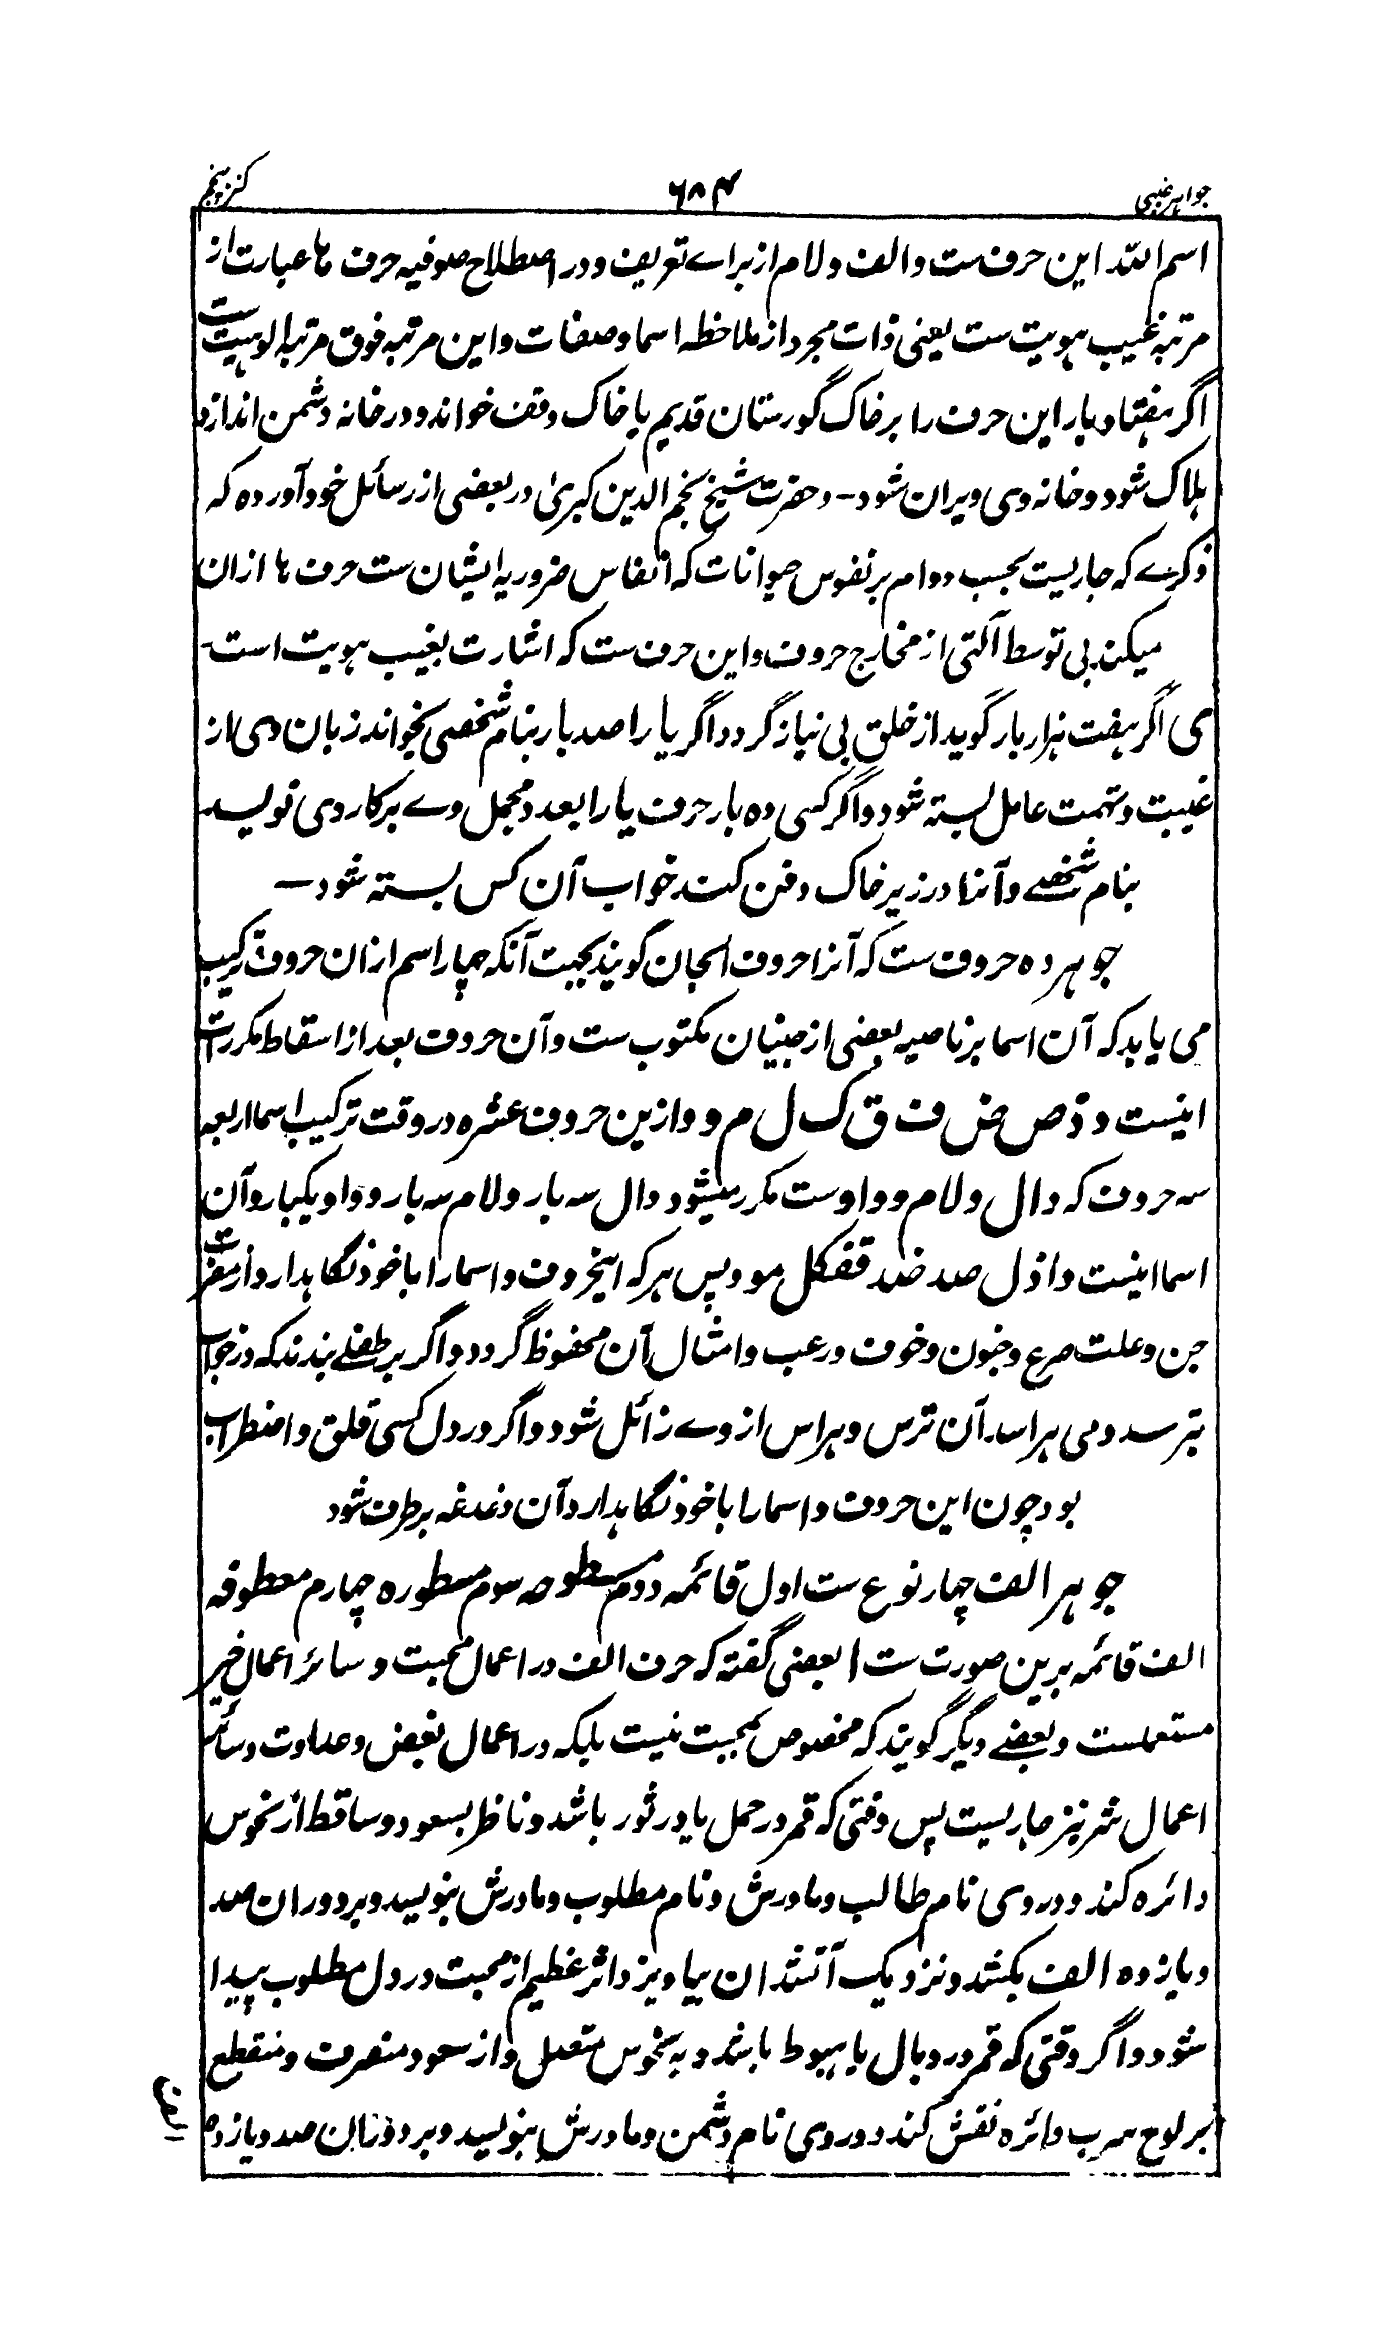 جواہر غیبی
۶۸۴
کنز پنجم
اسم اللہ این حرف ست و الف و لام از براے تعریف و در اصطلاح صوفیہ حرف ہا عبارت از
مرتبہ غیب ہویت ست یعنی ذات مجرد از ملاحظہ اسما و صفات و این مرتبہ فوق مرتبہ الوہیت ست
اگر ہفتاد بار این حرف را بر خاک گورستان قدیم یا خاک وقف خواند و در خانہ دشمن اندازد
ہلاک شود و خانہ وی ویران شود ـ و حضرت شیخ نجم الدین کبریٰ در بعضی از رسائل خود آوردہ کہ
ذکرے کہ جاریست بحسب دوام بر نفوس حیوانات کہ انفاس ضروریہ ایشان ست حرف ہا ازان
میکند بی توسط آلتی از مخارج حروف و این حرف ست کہ اشارت بغیب ہویت است ـ
ی اگر ہفت ہزار بار گوید از خلق بی نیاز گردد اگر یا را صد بار بنام شخصی بخواند زبان وی از
غیبت و تہمت عامل بستہ شود و اگر کسی دہ بار حرف یا را بعدد مجمل وے بر کاردی نویسد
بنام شخصے و آنرا در زیر خاک دفن کند خواب آن کس بستہ شود ـ
جوہر دہ حروف ست کہ آنرا حروف الجان گویند بجہت آنکہ چہار اسم ازان حروف ترکیب
می یابد کہ آن اسما بر ناصیہ بعضی از جنیان مکتوب ست و آن حروف بعد از اسقاط مکررات
اینست د ذ ص ض ف ق ک ل م و و ازین حروف عشرہ در وقت ترکیب اسما اربعہ
سہ حروف کہ دال و لام و واوست مکرر میشود دال سہ بار و لام سہ بار و واو یکبار و آن
اسما اینست و اذل صد ضد قفکل مو و پس ہر کہ اینحروف و اسما را با خود نگاہدارد از مضرت
جن و علت صرع و جنون و خوف و رعب و امثال آن محفوظ گردد و اگر بر طفلے بندند کہ در خواب
بترسد و می ہراسد آن ترس و ہراس از وے زائل شود و اگر در دل کسی قلق و اضطراب
بود چون این حروف و اسما را با خود نگاہدارد آن دغدغہ بر طرف شود
جوہر الف چہار نوع ست اول قائمہ دوم مسطوحہ سوم مسطورہ چہارم معطوفہ
الف قائمہ برین صورت ست ا بعضی گفتہ کہ حرف الف در اعمال محبت و سائر اعمال خیر
مستعملست و بعضے دیگر گویند کہ مخصوص بمحبت نیست بلکہ در اعمال بغض و عداوت و سائر
اعمال شر نیز جاریست پس وقتی کہ قمر در حمل یا در ثور باشد و ناظر بسعود و ساقط از نحوس
دائرہ کند و در وی نام طالب و مادرش و نام مطلوب و مادرش بنویسد و بر دوران صد
و یازدہ الف بکشد و نزدیک آتشدان بیاویزد اثر عظیم از محبت در دل مطلوب پیدا
شود و اگر وقتی کہ قمر در وبال یا ہبوط باشد و بہ نحوس متصل و از سعود منصرف و منقطع
بر لوح سرب دائرہ نقش کند و در وی نام دشمن و مادرش بنویسد و بر دوران صد و یازدہ
الف